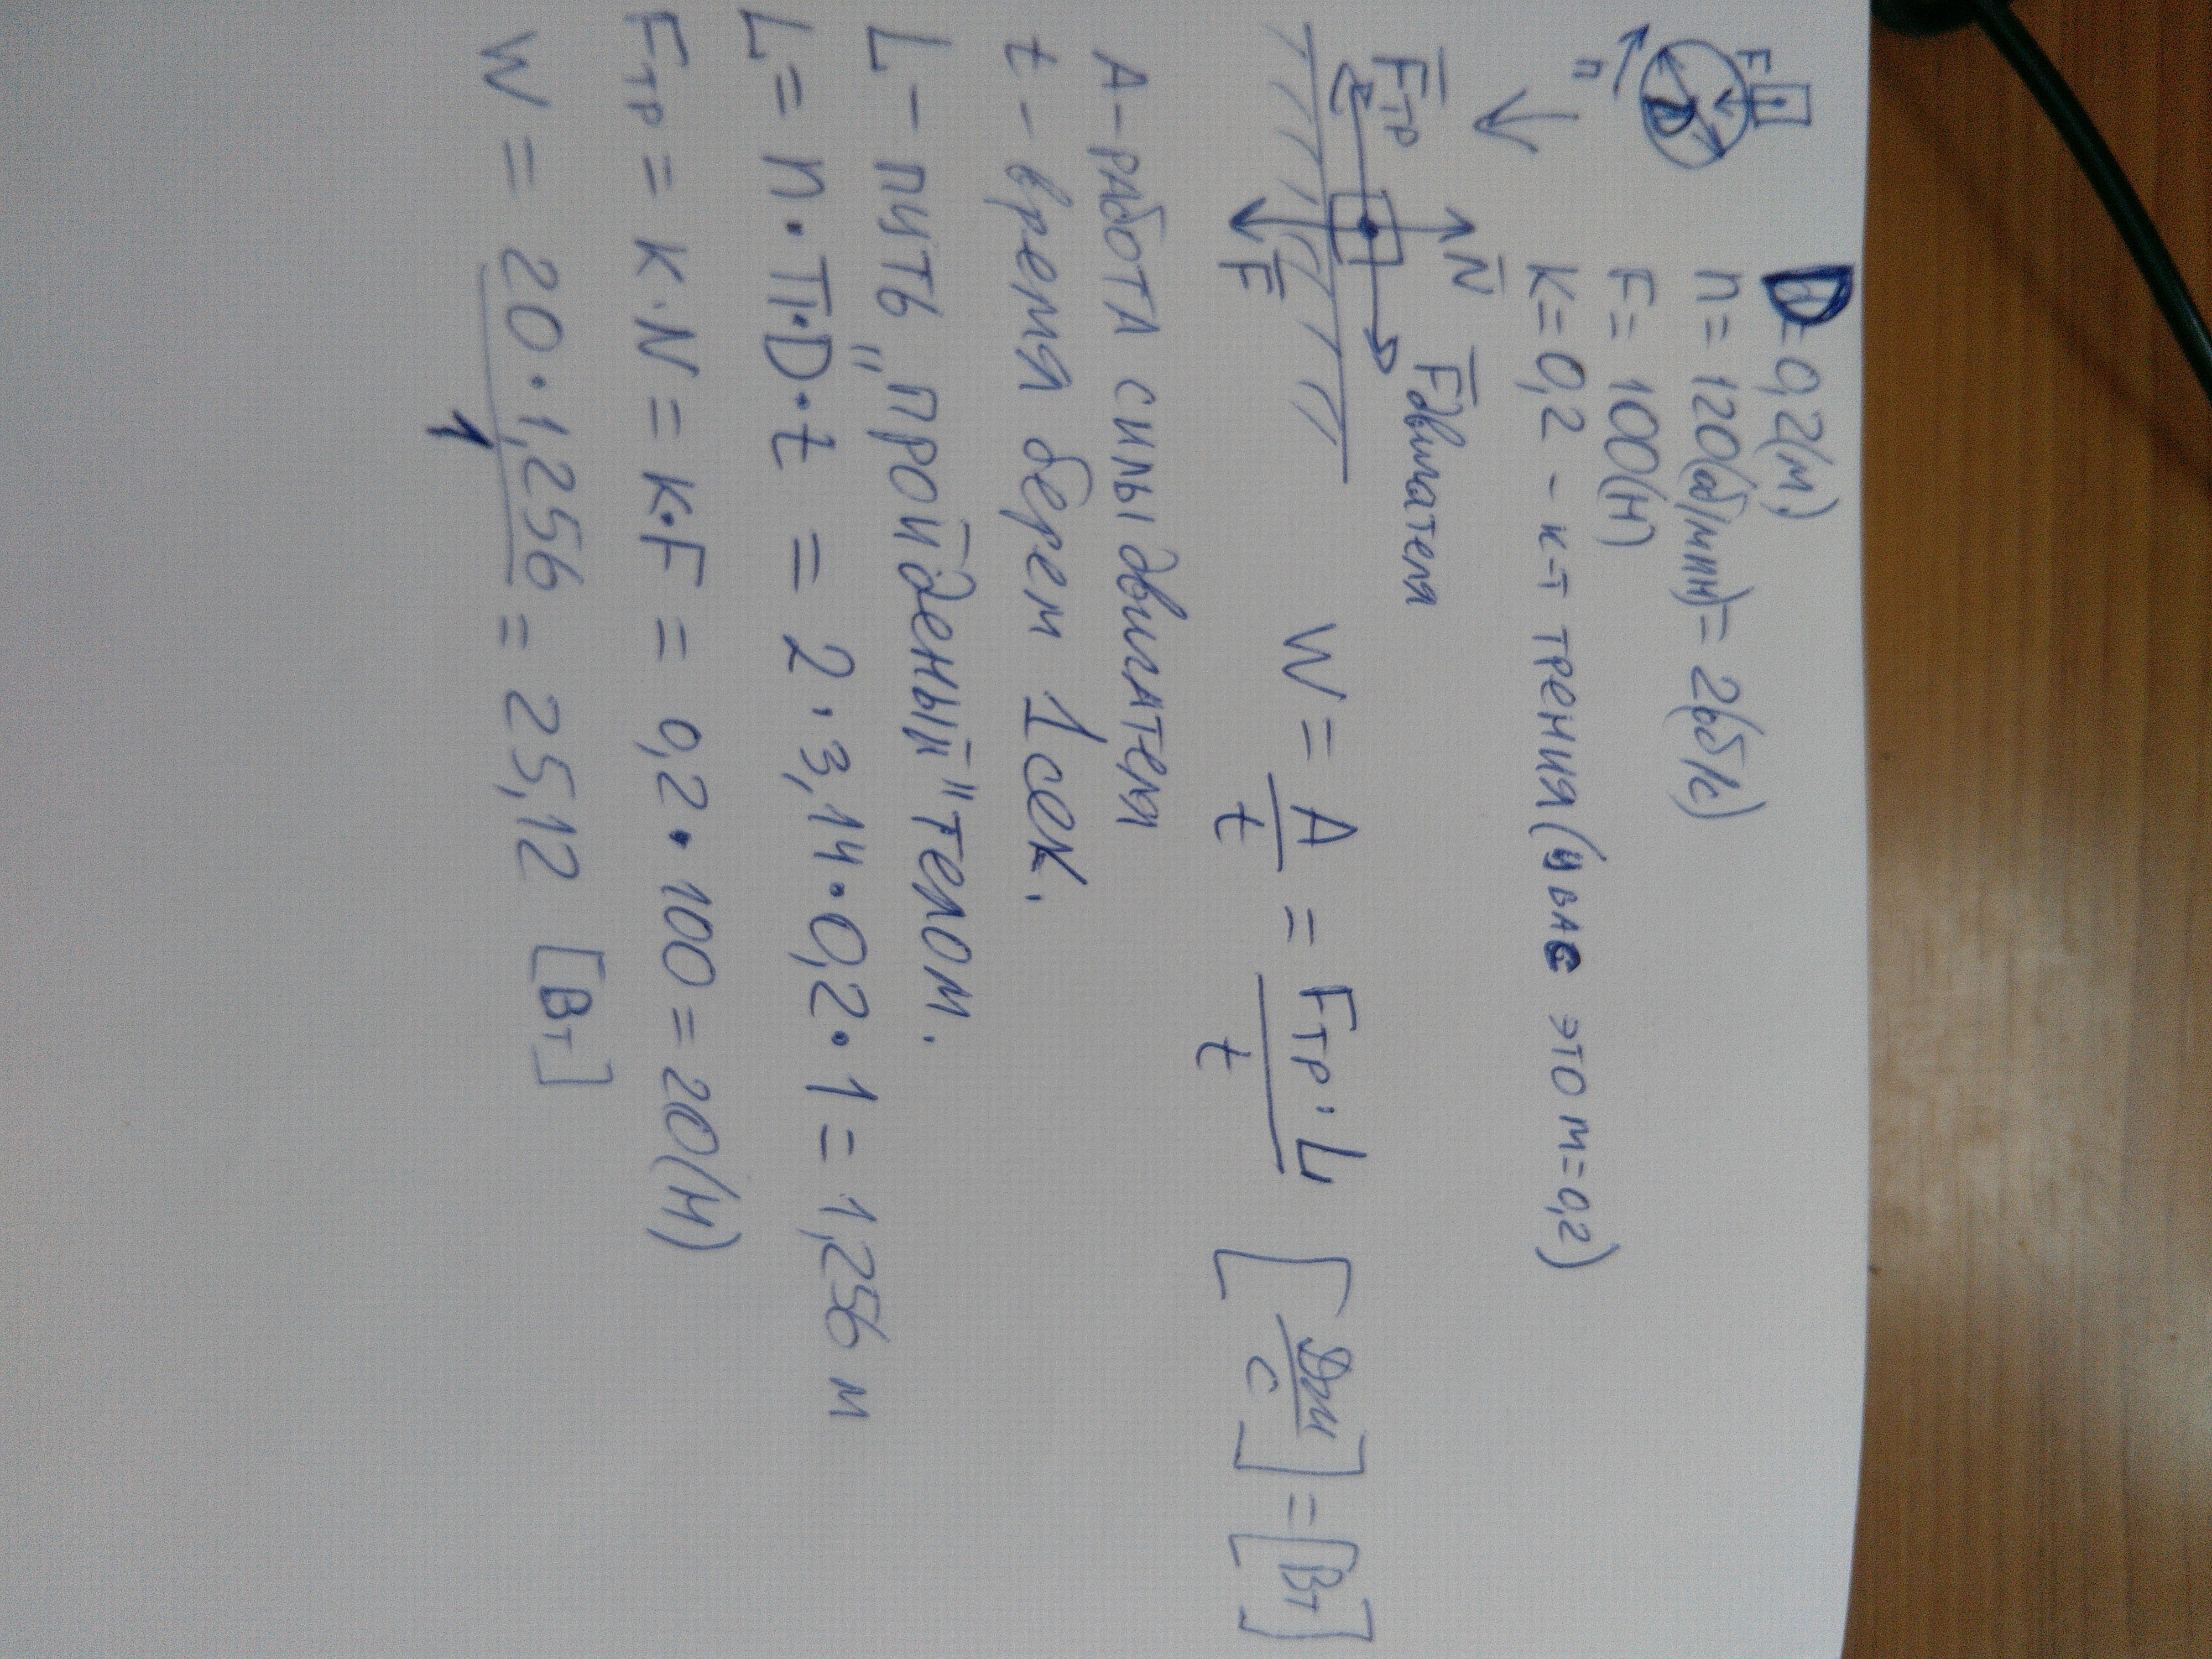 F
D
n
D=0,2(м)
n=120(об/мин)=2(об/с)
F=100(Н)
K=0,2 - к-т трения (у вас это m=0,2)
F̅тр N̅ F̅двигателя
F̅
W = A/t = Fтр·L/t [Дж/с] = [Вт]
A-работа силы двигателя
t - время берем 1 сек.
L - путь „пройденый" телом.
L = n·π·D·t = 2·3,14·0,2·1 = 1,256 м
Fтр = K·N = K·F = 0,2·100 = 20(Н)
W = 20·1,256/1 = 25,12 [Вт]